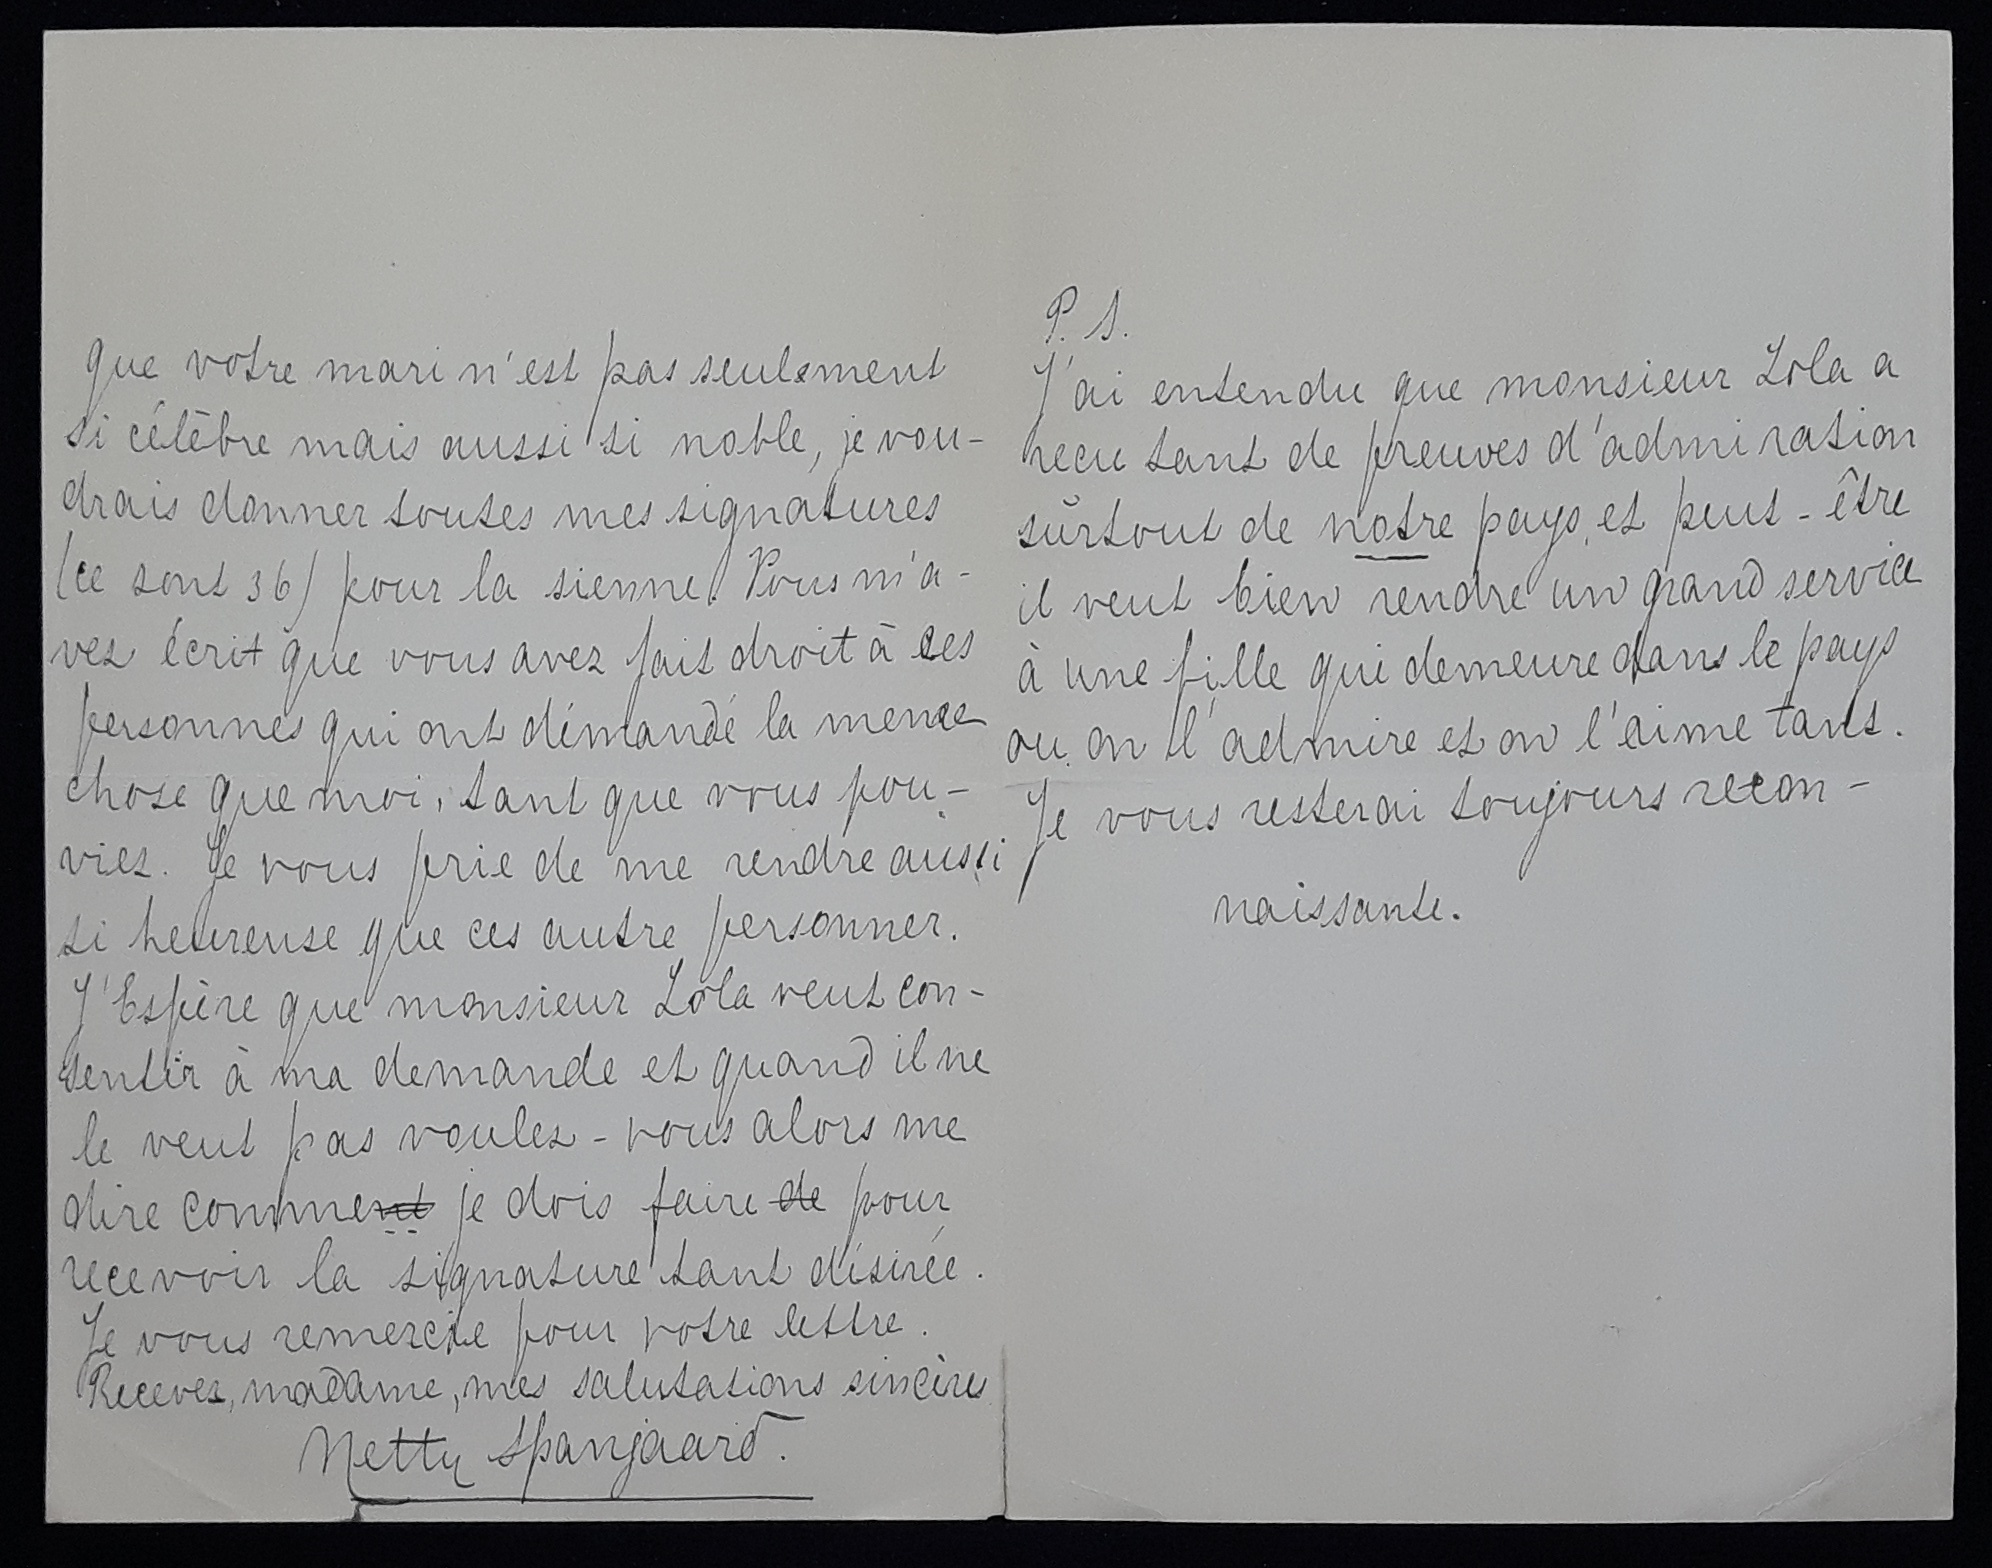 que votre mari n'est pas seulement
si célèbre mais aussi si noble, je vou-
drais donner toutes mes signatures
(ce sont 36) pour la sienne. Vous m'a-
vez écrit que vous avez fait droit à ces
personnes qui ont démandé la meme
chose que moi, tant que vous pou-
viez. Je vous prie de me rendre aussi
si heureuse que ces autre personner.
J'Espère que monsieur Zola veut con-
sentir à ma demande et quand il ne
le veut pas voulez-vous alors me
dire comment je dois faire de pour
recevoir la signature tant désirée.
Je vous remercie pour votre lettre.
Recevez, madame, mes salutations sincères
Netty Spanjaard.
P. S.
J'ai entendu que monsieur Zola a
recu tant de preuves d'admiration
sŭrtout de notre pays, et peut-être
il veut bien rendre un grand service
à une fille qui demeure dans le pays
ou on l'admire et on l'aime tant.
Je vous resterai toujours recon-
naissante.